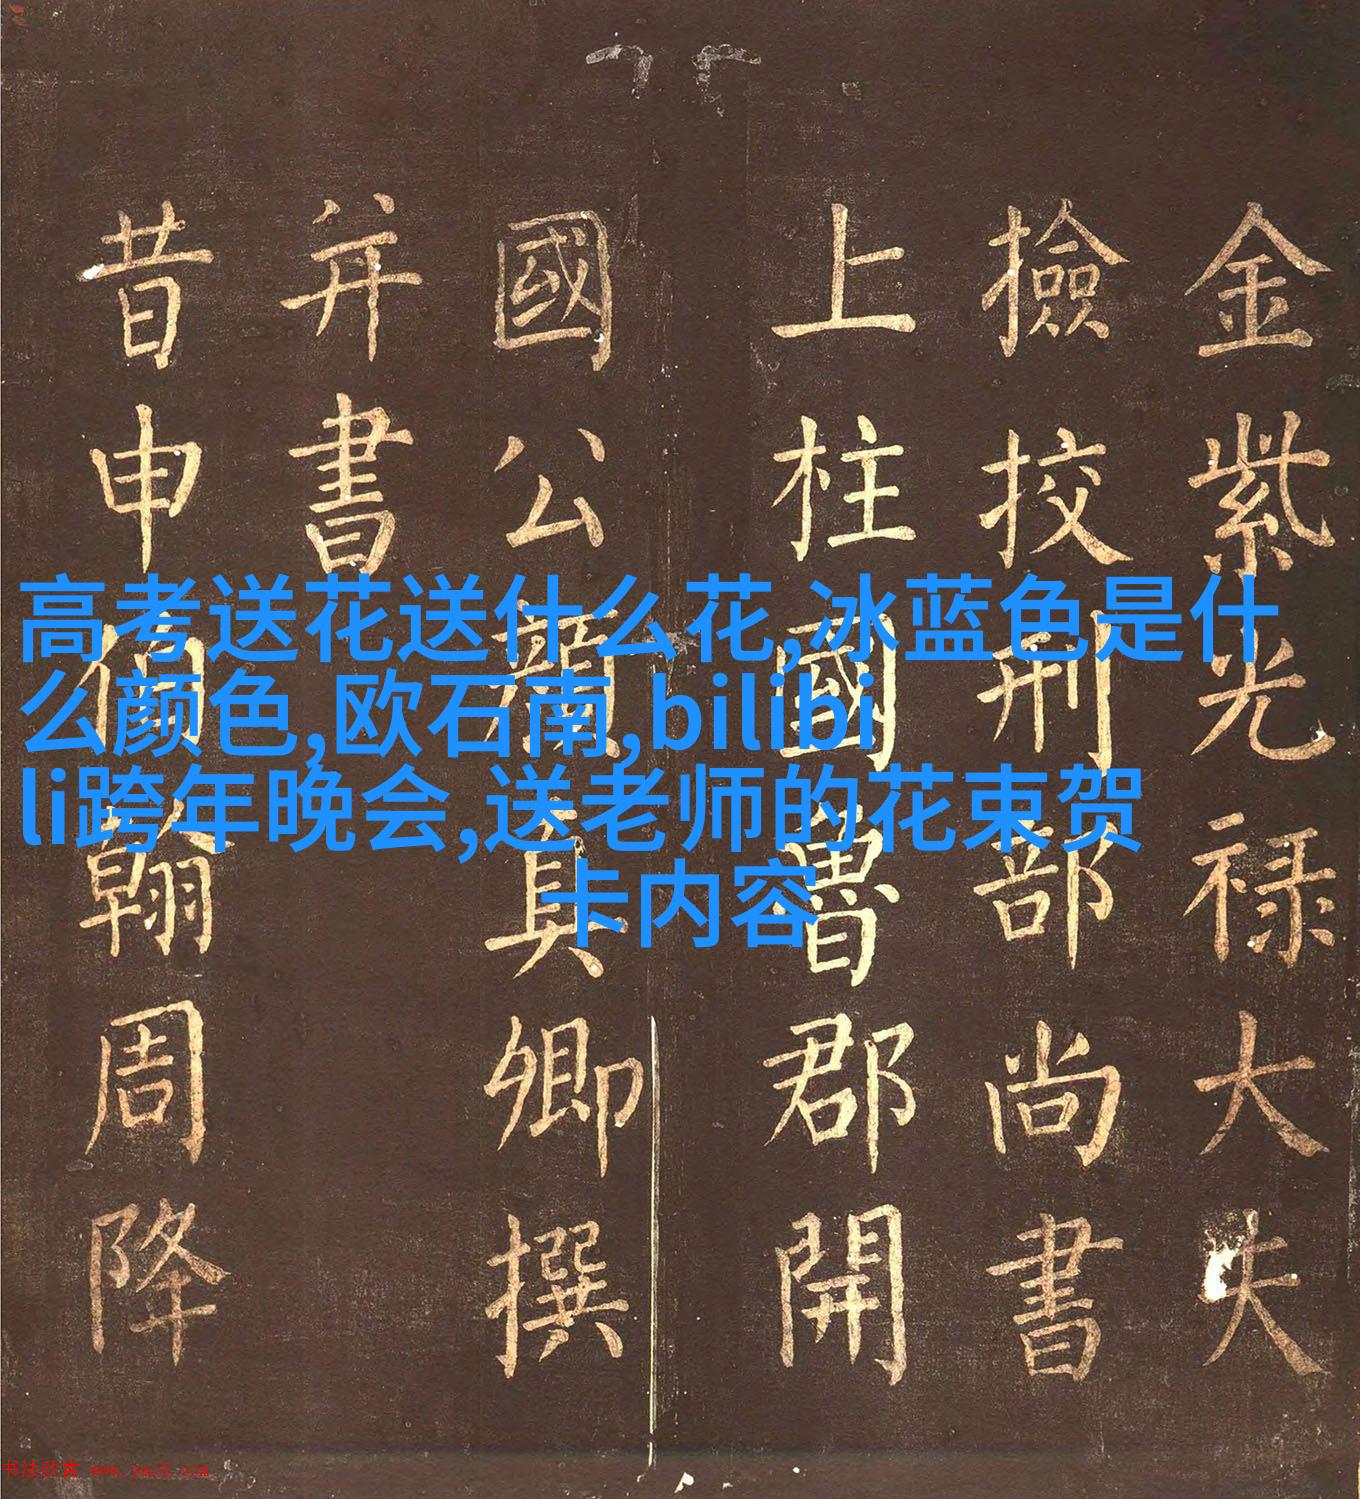 金紫光禄大夫
撿挍刑部尚書
上柱國魯郡開
國公顏真卿撰
并書
昔申伯翰周降
高考送花送什么花,冰蓝色是什
么颜色,欧石南,bilibi
li跨年晚会,送老师的花束贺
卡内容
书法欣赏 www.yac8.com